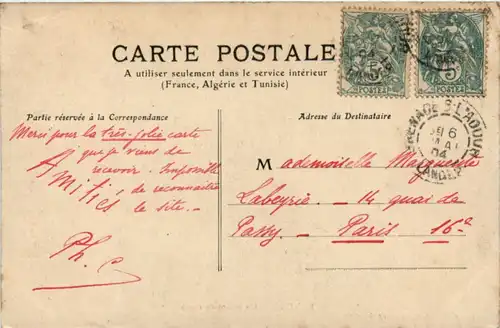 CARTE POSTALE
A utiliser seulement dans le service intérieur
(France, Algérie et Tunisie)
Partie réservée à la Correspondance
Adresse du Destinataire
Merci pour la très-jolie carte
que je viens de
recevoir. Impossible
de reconnaître
le site.
Amitiés
Ph.
Mademoiselle Marguerite
Labeyrie. 14 quai de
Passy. Paris 16e
POSTES
POSTES
5
GRENADE S-L'ADOUR
6
MAI
04
LANDES